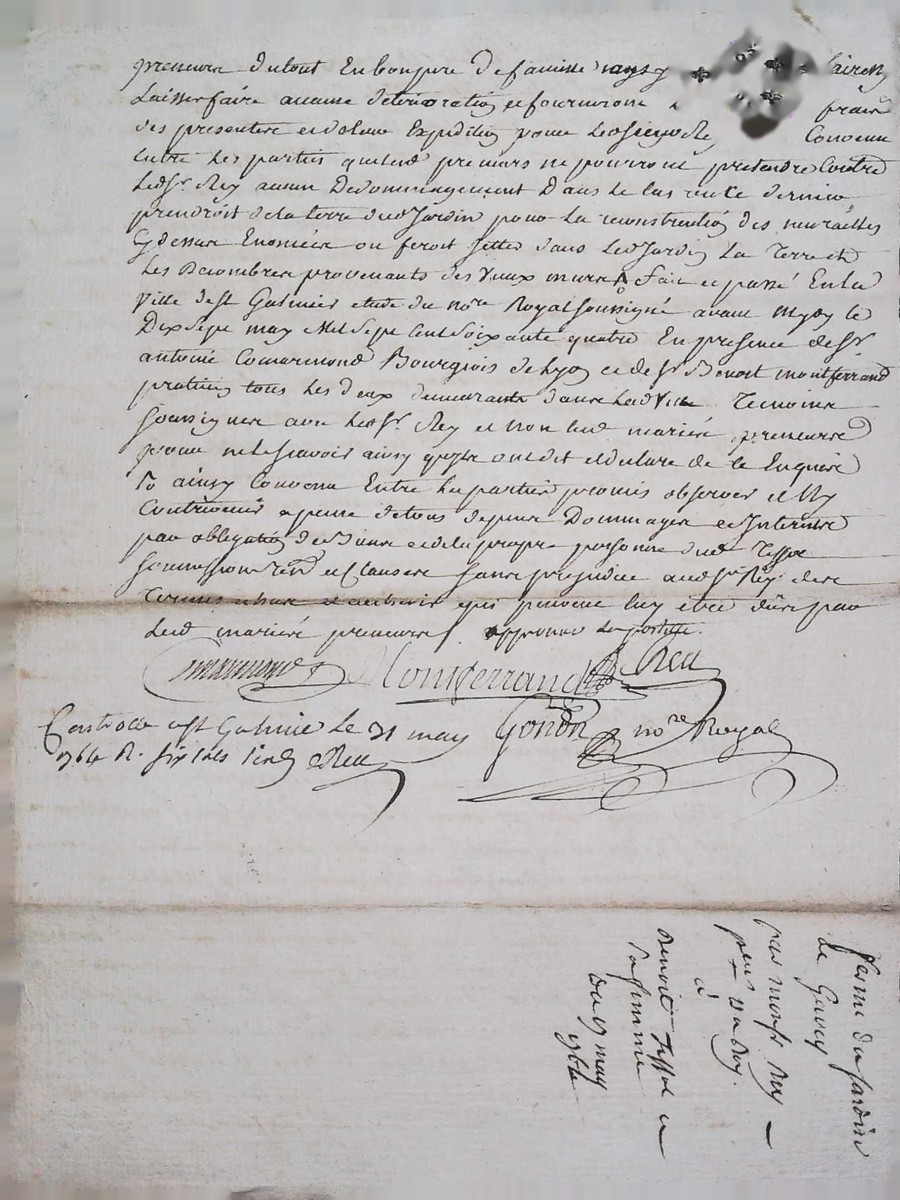 preneurs du tout En bon pere de famille sans y faire ny
Laisser faire aucune deterioration et fourniront frais
des presentes et d'eux Expedition pour led sieur Rey Convenu
Entre Les parties que lesd preneurs ne pourront pretendre Contre
led Sr. Rey aucun Dedommagement Dans le cas ou ce dernier
prendroit de la terre dud Jardin pour La reconstruction des murailles
Cydessus Enoncées ou feroit jetter dans Led Jardin La Terre et
Les Decombres provenants des vieux murs fait et passé En la
ville de St Galmier etude du nore Royal soussigné avant mydy le
Dix Sept may Mil Sept Cent Soixante quatre En presence de Sr.
antoine Comarmond Bourgeois de Lyon et de Sr. Benoit montferrand
praticien tous Les deux demeurants dans Lad ville Temoins
soussignes avec led Sr. Rey et non Lesd mariés preneurs
pour ne le scavoir ainsy qu'ils ont dit et declaré de ce Enquis
ainsy Convenu Entre les parties promis observer et N'y
Contrevenir a peine de tous depens Dommages et Interests
par obligation de Biens et de la propre personne dud Tissot
soumissions Ren et Clauses sans prejudice aud Sr. Rey des
Termes echus et a echoir qui peuvent luy etre dûs par
Lesd mariés preneurs approuvé
Comarmond Montferrand Rey
Gonon nore Royal
Controllé a St Galmier Le 31 may
1764 R. six sols Rey
ferme du jardin
de
par monsr Rey
à
benoit Tissot et
sa femme
Du 17 may
1764